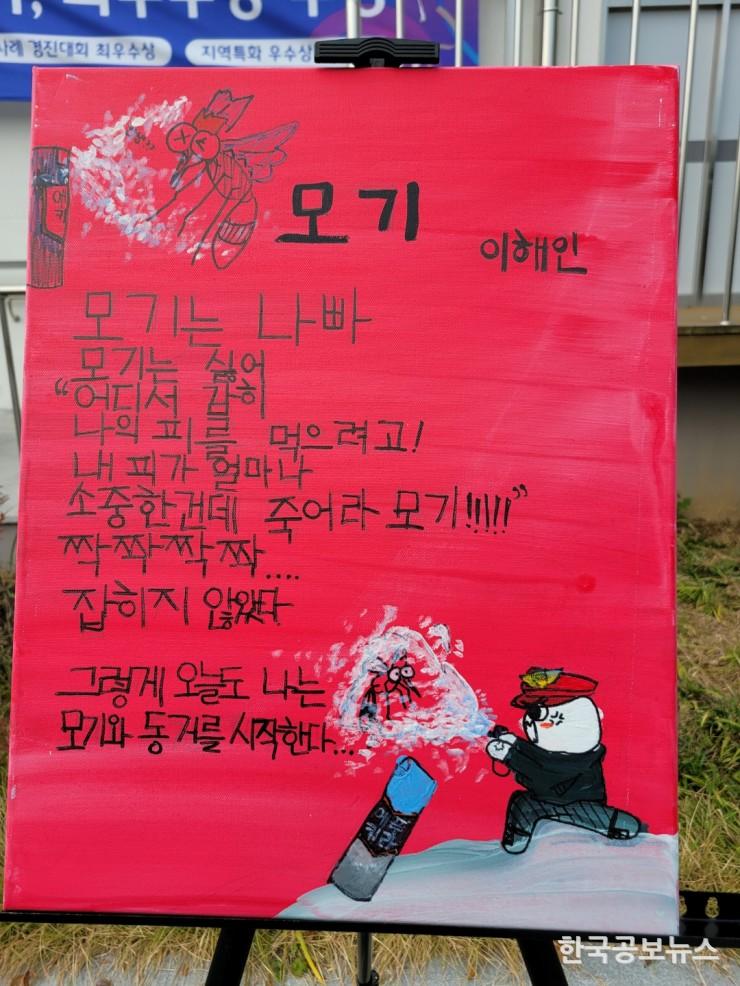 사례 경진대회 최우수상
지역특화 우수상
모기
이해인
모기는 나빠
모기는 싫어
“어디서 감히
나의 피를 먹으려고!
내 피가 얼마나
소중한건데 죽어라 모기!!!!!!”
짝짝짝짝....
잡히지 않았다
그렇게 오늘도 나는
모기와 동거를 시작한다...
한국공보뉴스